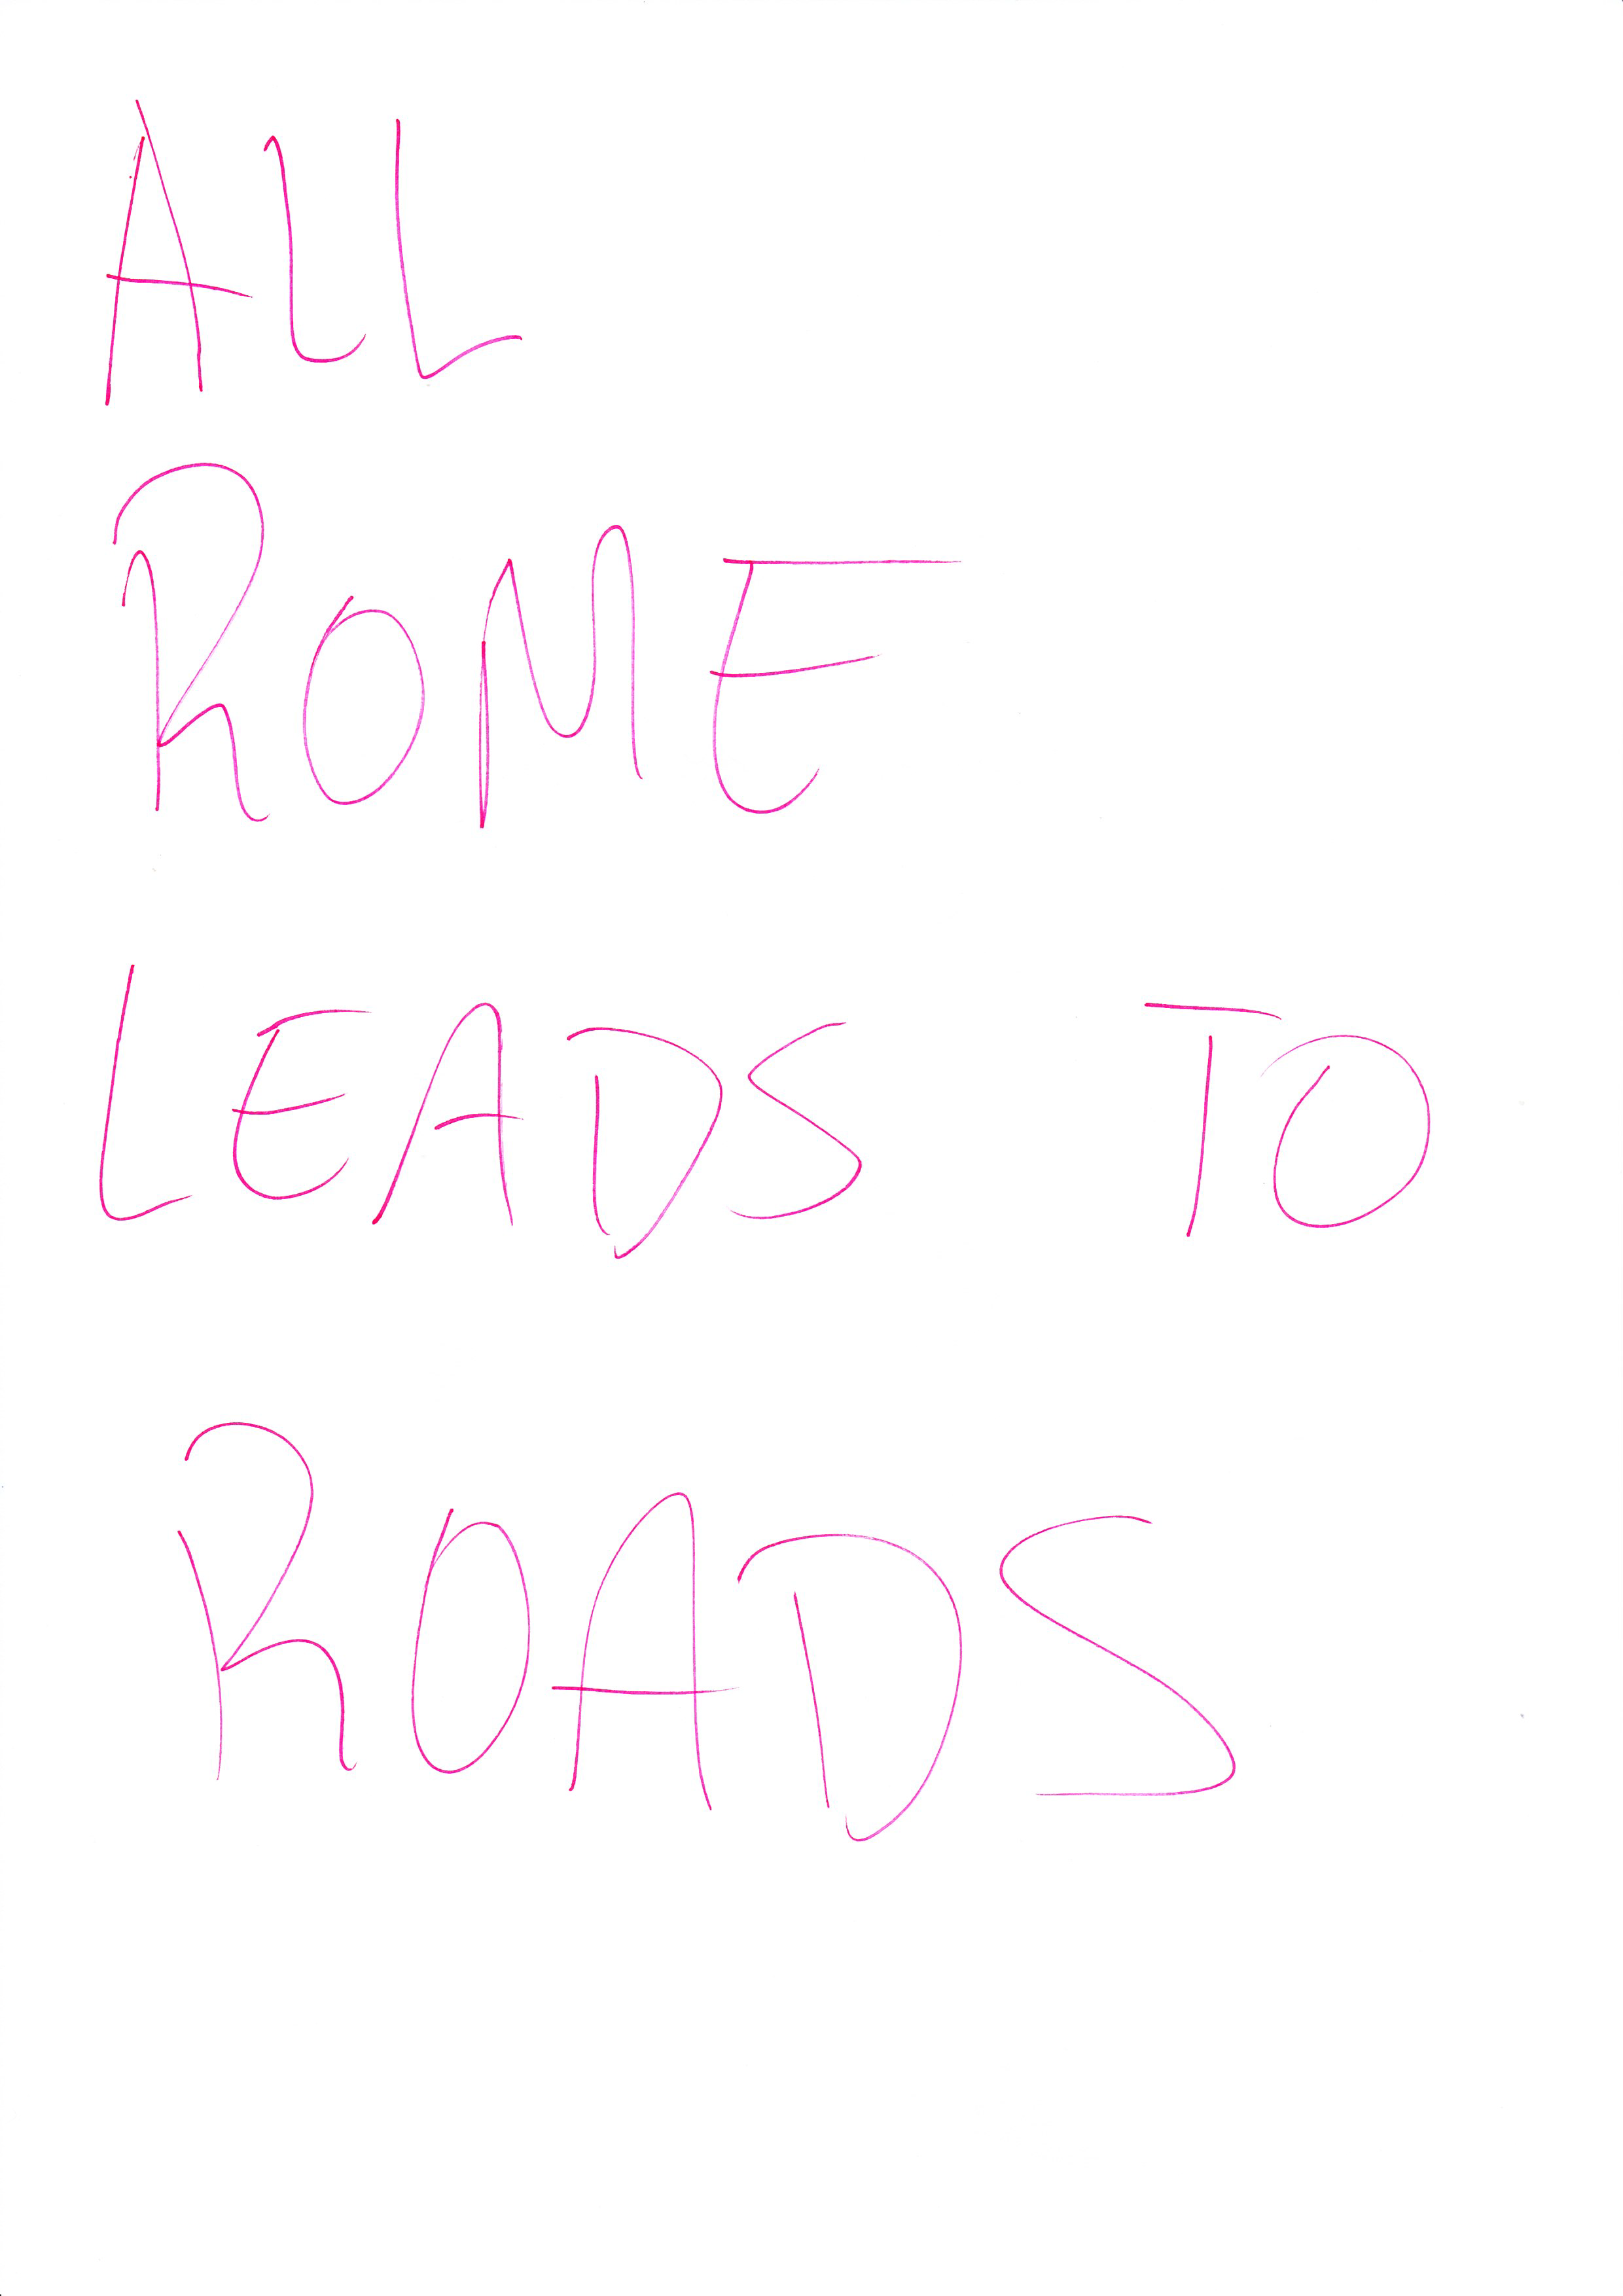 ALL
ROME
LEADS TO
ROADS